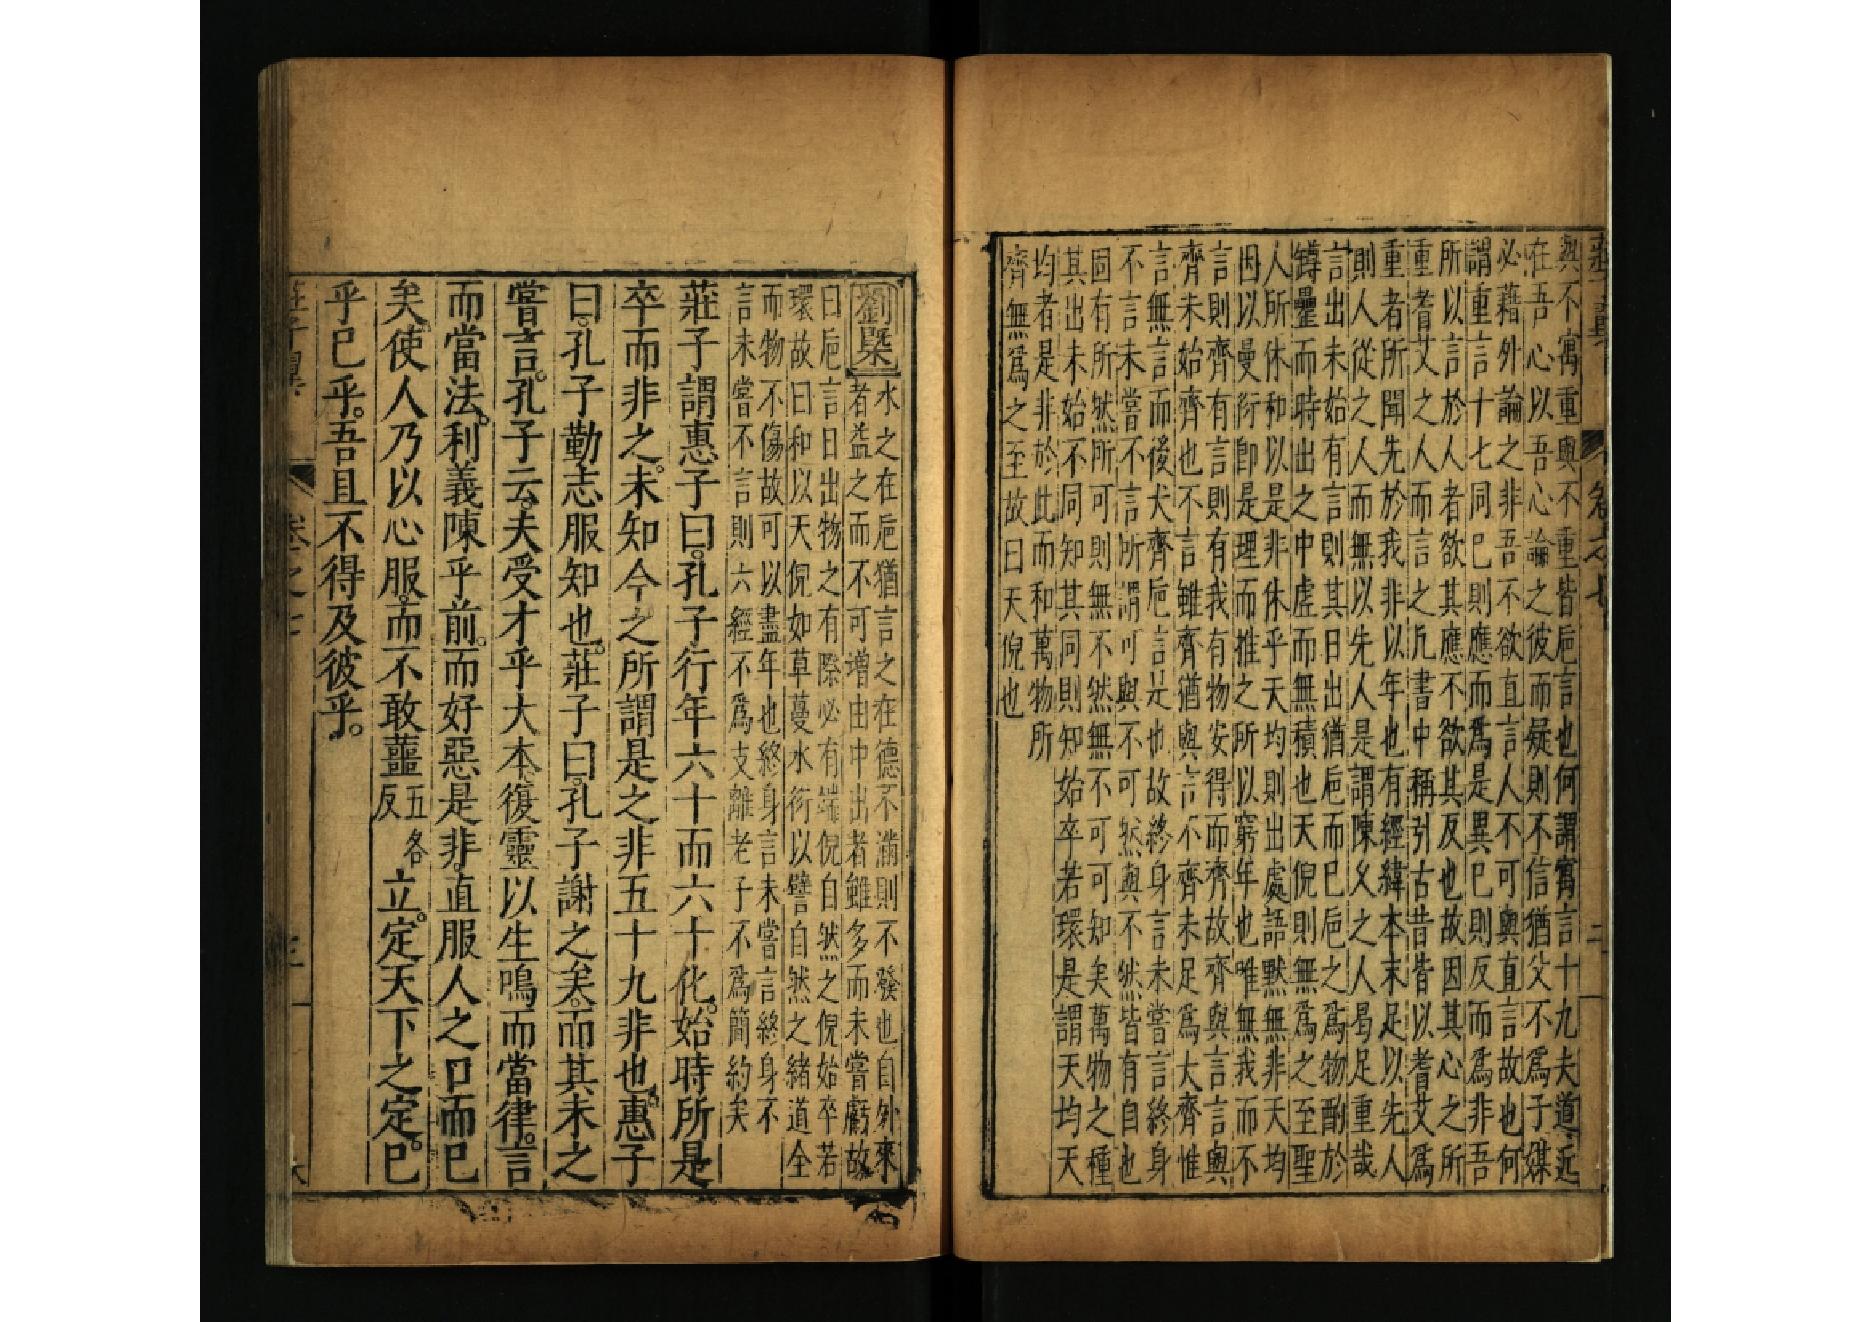 莊子翼　卷之七　二
與不寓重與不重皆巵言也何謂寓言十九夫道近
在吾心以吾心論之彼而疑則不信猶父不爲子媒
必藉外論之非吾不欲直言人不可與直言故也何
謂重言十七同已則應而爲是異已則反而爲非吾
所以言於人者欲其應不欲其反也故因其心之所
重耆艾之人而言之凢書中稱引古昔皆以耆艾爲
重者所聞先於我非以年也有經緯本末足以先人
則人從之人而無以先人是謂陳久之人曷足重哉
言出未始有言則其日出猶巵而已巵之爲物酌於
罇罍而時出之中虛而無積也天倪則無爲之至聖
人所休和以是非休乎天均則出處語黙無非天均
因以曼衍卽是理而推之所以窮年也惟無我而不
言則齊有言則有我有物安得而齊故齊與言言與
齊未始齊也不言雖齊猶與言不齊未足爲大齊惟
言無言而後大齊巵言是也故終身言未嘗言終身
不言未嘗不言所謂可與不可然與不然皆有自也
固有所然所可則無不然無不可可知矣萬物之種
其出未始不同知其同則知始卒若環是謂天均天
均者是非於此而和萬物所
齊無爲之至故曰天倪也
劉槩
水之在巵猶言之在德不滿則不發也自外來
者益之而不可增由中出者雖多而未嘗虧故
曰巵言日出物之有際必有端倪自然之倪始卒若
環故曰和以天倪如草蔓水衍以譬自然之緒道全
而物不傷故可以盡年也終身言未嘗言終身不
言未嘗不言則六經不爲支離老子不爲簡約矣
莊子謂惠子曰。孔子行年六十而六十化。始時所是
卒而非之。未知今之所謂是之非五十九非也。惠子
曰。孔子勤志服知也。莊子曰。孔子謝之矣。而其未之
嘗言。孔子云。夫受才乎大本。復靈以生鳴而當律。言
而當法。利義陳乎前。而好惡是非。直服人之口而已
矣。使人乃以心服。而不敢蘁五各反立。定天下之定。已
乎已乎。吾且不得及彼乎。
莊子翼　卷之七　三